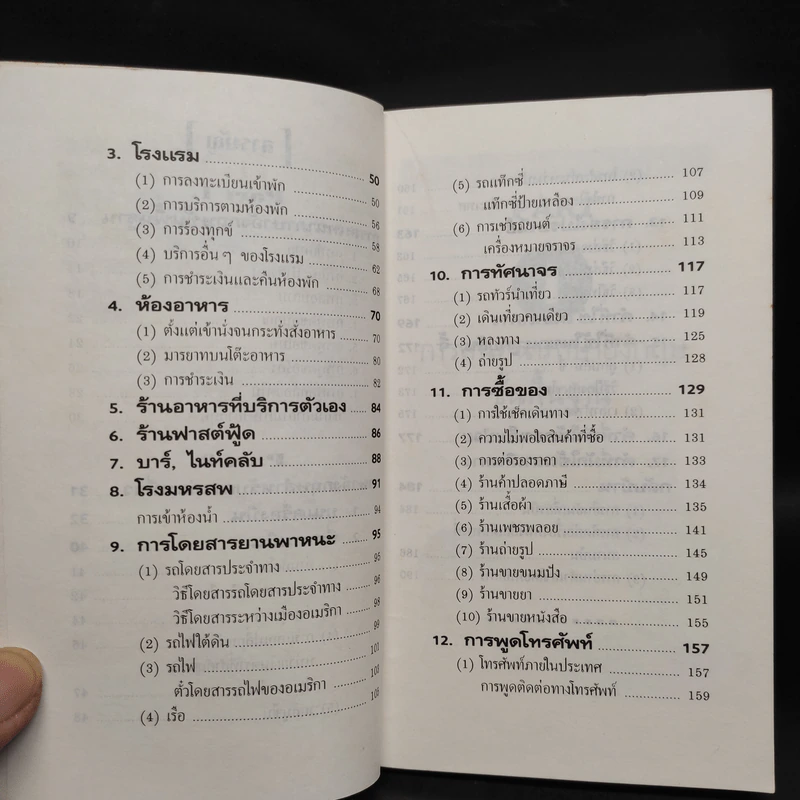 3. โรงแรม 50
(1) การลงทะเบียนเข้าพัก 50
(2) การบริการตามห้องพัก 56
(3) การร้องทุกข์ 58
(4) บริการอื่น ๆ ของโรงแรม 62
(5) การชำระเงินและคืนห้องพัก 68
4. ห้องอาหาร 70
(1) ตั้งแต่เข้านั่งจนกระทั่งสั่งอาหาร 70
(2) มารยาทบนโต๊ะอาหาร 80
(3) การชำระเงิน 82
5. ร้านอาหารที่บริการตัวเอง 84
6. ร้านฟาสต์ฟู้ด 86
7. บาร์, ไนท์คลับ 88
8. โรงมหรสพ 91
การเข้าห้องน้ำ 94
9. การโดยสารยานพาหนะ 95
(1) รถโดยสารประจำทาง 95
วิธีโดยสารรถโดยสารประจำทาง 96
วิธีโดยสารระหว่างเมืองอเมริกา 98
(2) รถไฟใต้ดิน 99
(3) รถไฟ 101
ตั๋วโดยสารรถไฟของอเมริกา 103
(4) เรือ 105
(5) รถแท็กซี่ 107
แท็กซี่ป้ายเหลือง 109
(6) การเช่ารถยนต์ 111
เครื่องหมายจราจร 113
10. การทัศนาจร 117
(1) รถทัวร์นำเที่ยว 117
(2) เดินเที่ยวคนเดียว 119
(3) หลงทาง 125
(4) ถ่ายรูป 128
11. การซื้อของ 129
(1) การใช้เช็คเดินทาง 131
(2) ความไม่พอใจสินค้าที่ซื้อ 131
(3) การต่อรองราคา 133
(4) ร้านค้าปลอดภาษี 134
(5) ร้านเสื้อผ้า 135
(6) ร้านเพชรพลอย 141
(7) ร้านถ่ายรูป 145
(8) ร้านขายขนมปัง 149
(9) ร้านขายยา 151
(10) ร้านขายหนังสือ 155
12. การพูดโทรศัพท์ 157
(1) โทรศัพท์ภายในประเทศ 157
การพูดติดต่อทางโทรศัพท์ 159